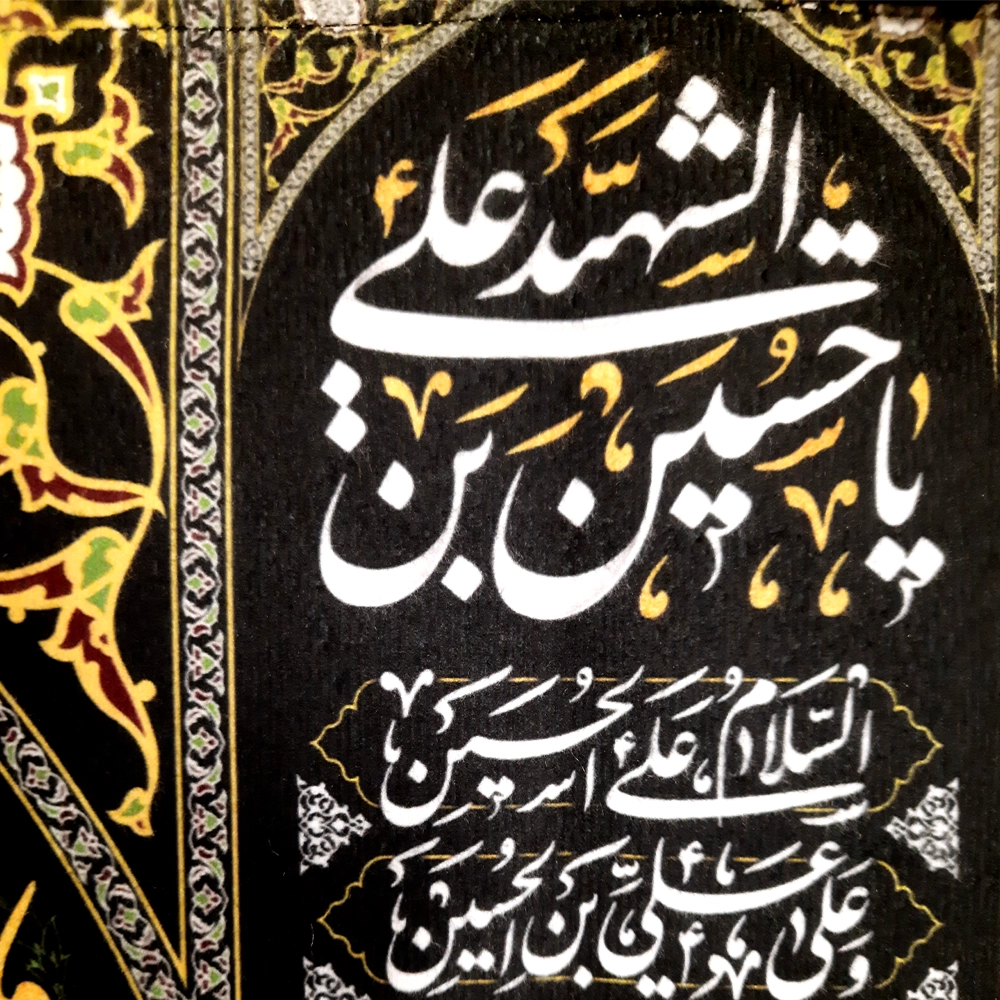 يا حسين بن
علي الشهيد
السَّلامُ عَلَى الحُسَين
وَعَلى عَليِّ بنِ الحُسَينِ